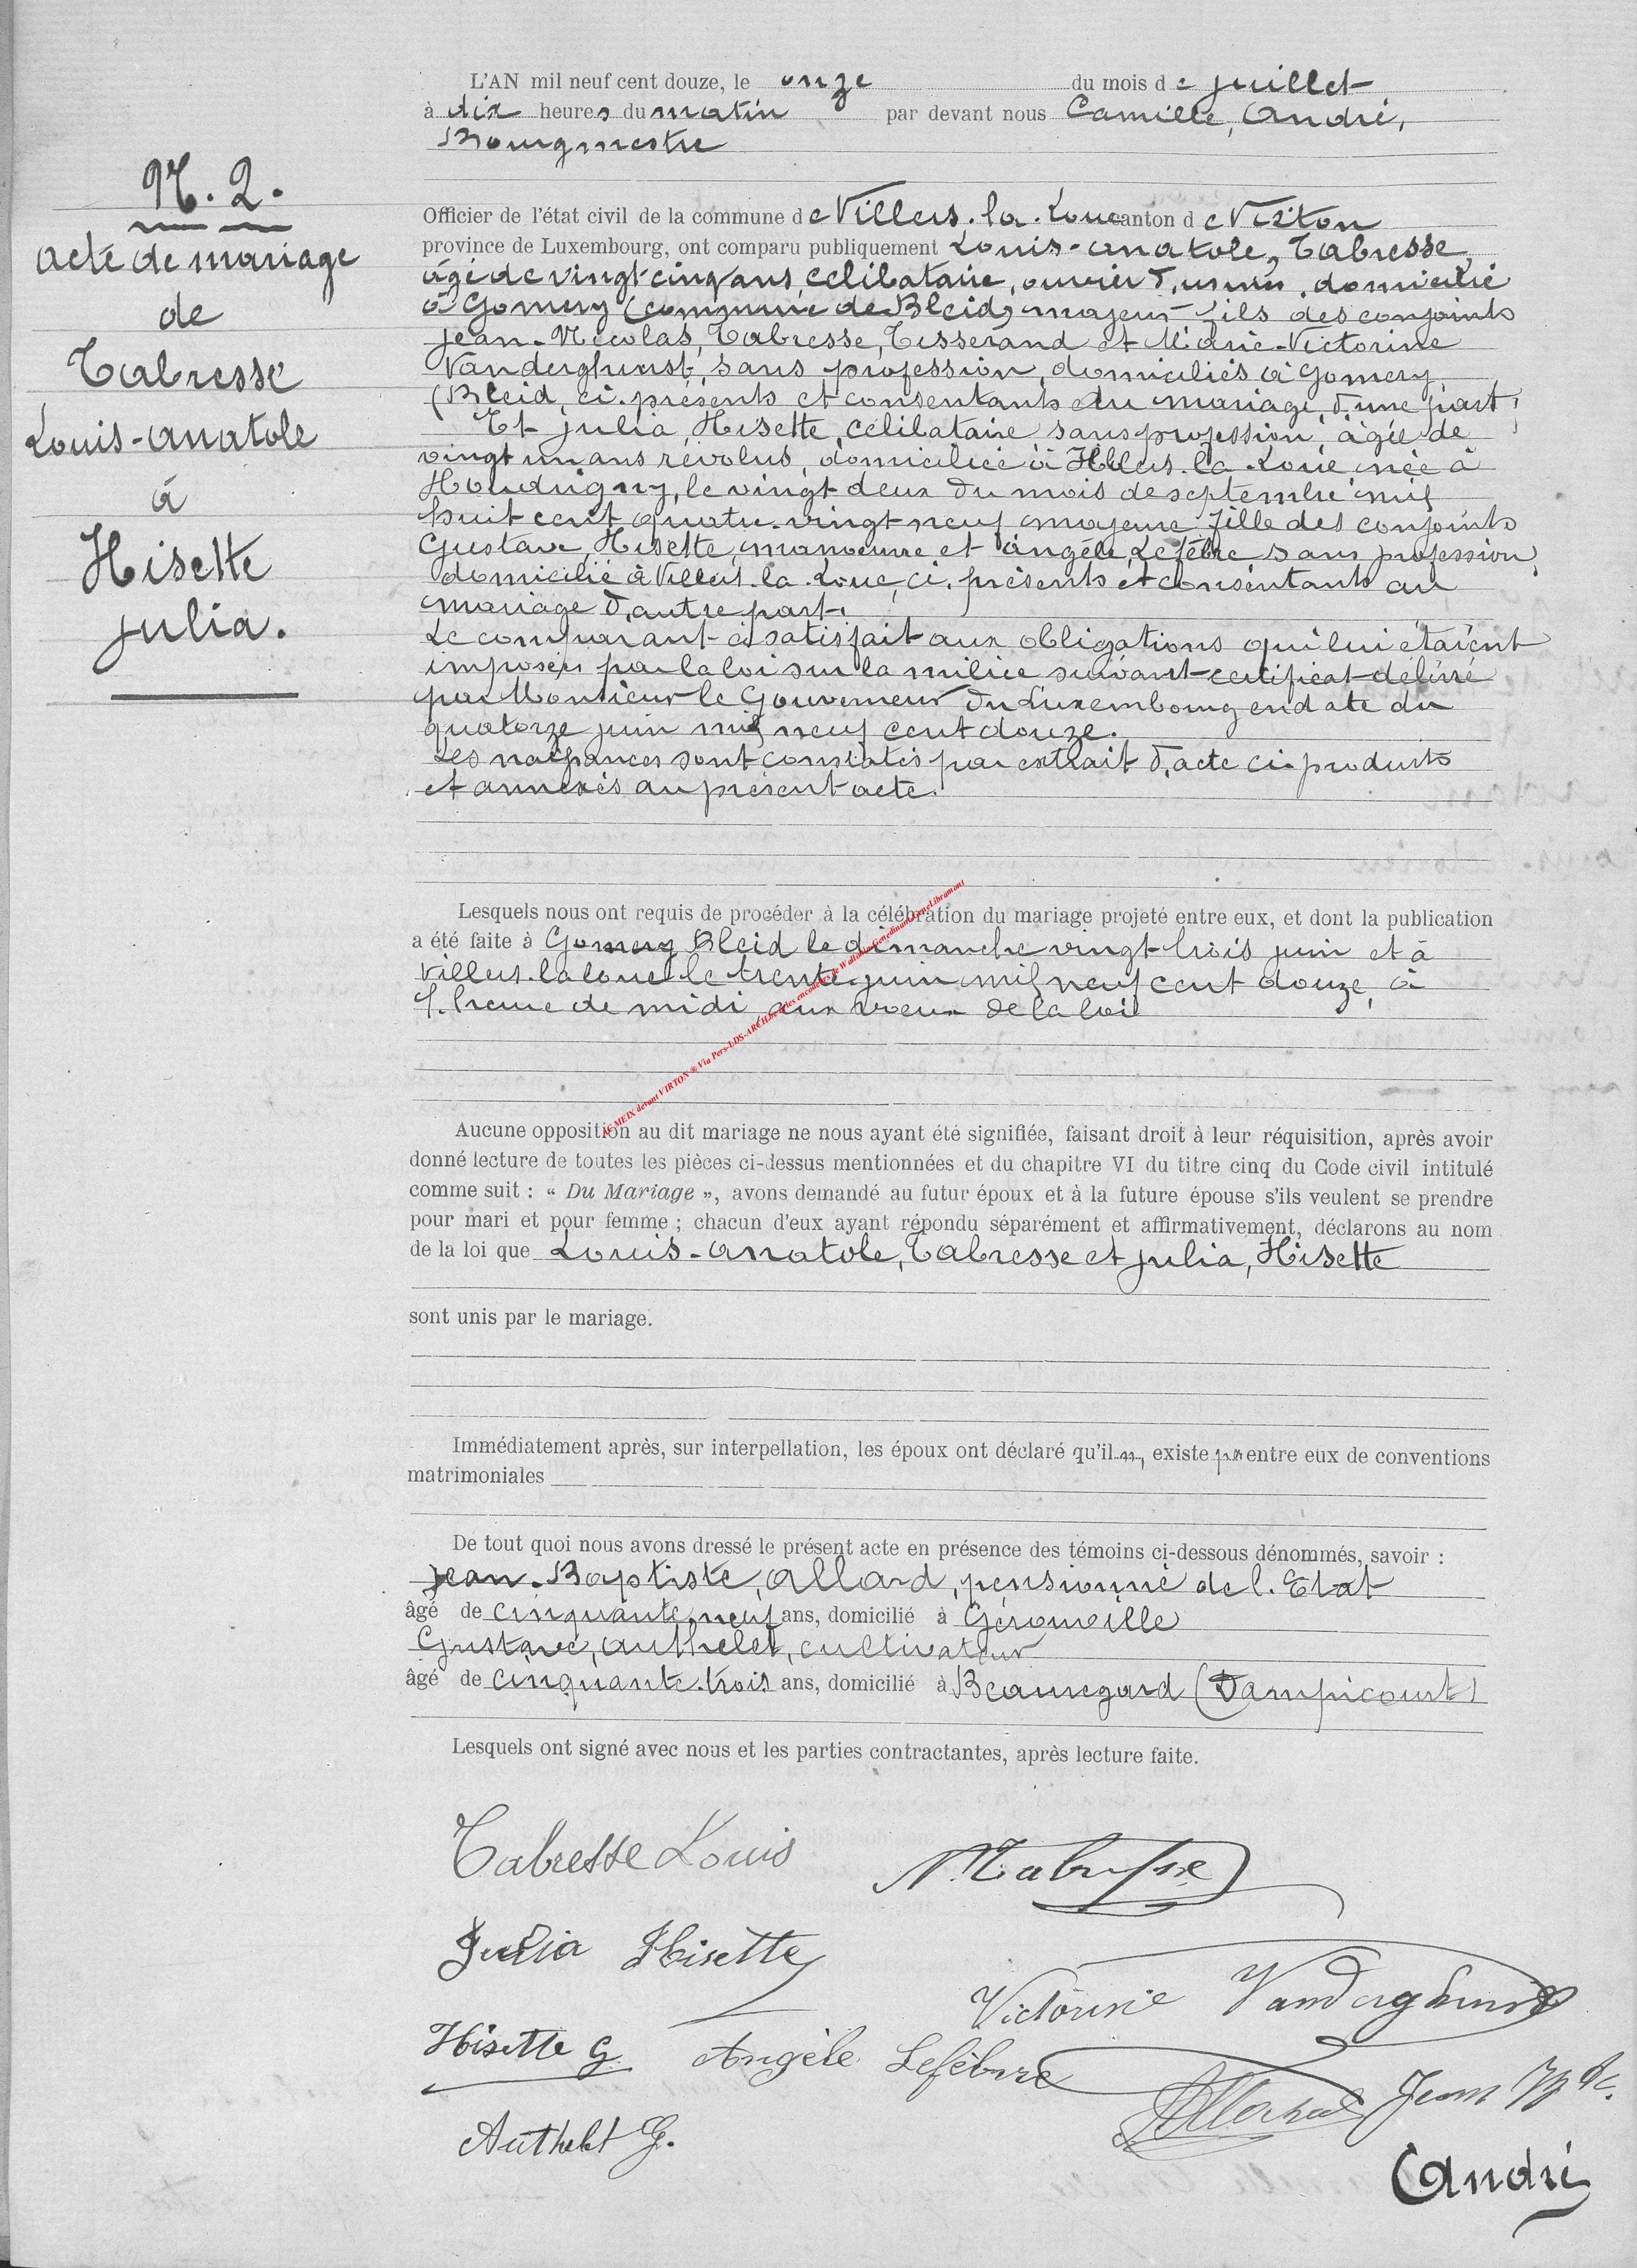 L'AN mil neuf cent douze, le onze du mois de juillet
à dix heures du matin par devant nous Camille, André,
Bourgmestre
N. 2.
Acte de mariage
de
Tabresse
Louis-Anatole
à
Hisette
Julia.
Officier de l'état civil de la commune de Villers-la-Loue canton de Virton
province de Luxembourg, ont comparu publiquement Louis-Anatole, Tabresse,
âgé de vingt cinq ans, célibataire, ouvrier d'usines, domicilié
à Gomery (commune de Bleid) majeur fils des conjoints
Jean-Nicolas, Tabresse, Tisserand et Marie-Victorine
Vanderghunst, sans profession, domiciliés à Gomery
(Bleid, ci-présents et consentants au mariage, d'une part,
Et Julia, Hisette, célibataire sans profession, âgée de
vingt un ans révolus, domiciliée à Villers-la-Loue, née à
Houdrigny, le vingt deux du mois de septembre mil
huit cent quatre-vingt neuf majeure fille des conjoints
Gustave, Hisette, manoeuvre et Angèle, Lefèbre sans profession,
domicilié à Villers-la-Loue, ci-présents et consentants au
mariage d'autre part.
Le comparant a satisfait aux obligations qui lui étaient
imposées par la loi sur la milice suivant certificat délivré
par Monsieur le Gouverneur du Luxembourg en date du
quatorze juin mil neuf cent douze.
Les naissances sont constatés par extrait d'acte ci-produits
et annexés au présent acte.
Lesquels nous ont requis de procéder à la célébration du mariage projeté entre eux, et dont la publication
a été faite à Gomery Bleid le dimanche vingt-trois juin et à
Villers-la-Loue le trente juin mil neuf cent douze, à
l'heure de midi, aux voeux de la loi
AC MEIX devant VIRTON ® Via Pers-LDS-ARCH.be et les encodeurs de Wallonia-Genedinant-GeneLibramont
Aucune opposition au dit mariage ne nous ayant été signifiée, faisant droit à leur réquisition, après avoir
donné lecture de toutes les pièces ci-dessus mentionnées et du chapitre VI du titre cinq du Code civil intitulé
comme suit : « Du Mariage », avons demandé au futur époux et à la future épouse s'ils veulent se prendre
pour mari et pour femme ; chacun d'eux ayant répondu séparément et affirmativement, déclarons au nom
de la loi que Louis-Anatole, Tabresse et Julia, Hisette
sont unis par le mariage.
Immédiatement après, sur interpellation, les époux ont déclaré qu'il n', existe pas entre eux de conventions
matrimoniales
De tout quoi nous avons dressé le présent acte en présence des témoins ci-dessous dénommés, savoir :
Jean-Baptiste, Allard, pensionné de l'Etat
âgé de cinquante neuf ans, domicilié à Gérouville
Gustave, Authelet, cultivateur
âgé de cinquante-trois ans, domicilié à Beauregard (Dampicourt)
Lesquels ont signé avec nous et les parties contractantes, après lecture faite.
Tabresse Louis
N. Tabresse
Julia Hisette
Victorine Vanderghunst
Hisette G
Angèle Lefèbvre
Allard Jean Bte.
Authelet G.
C André